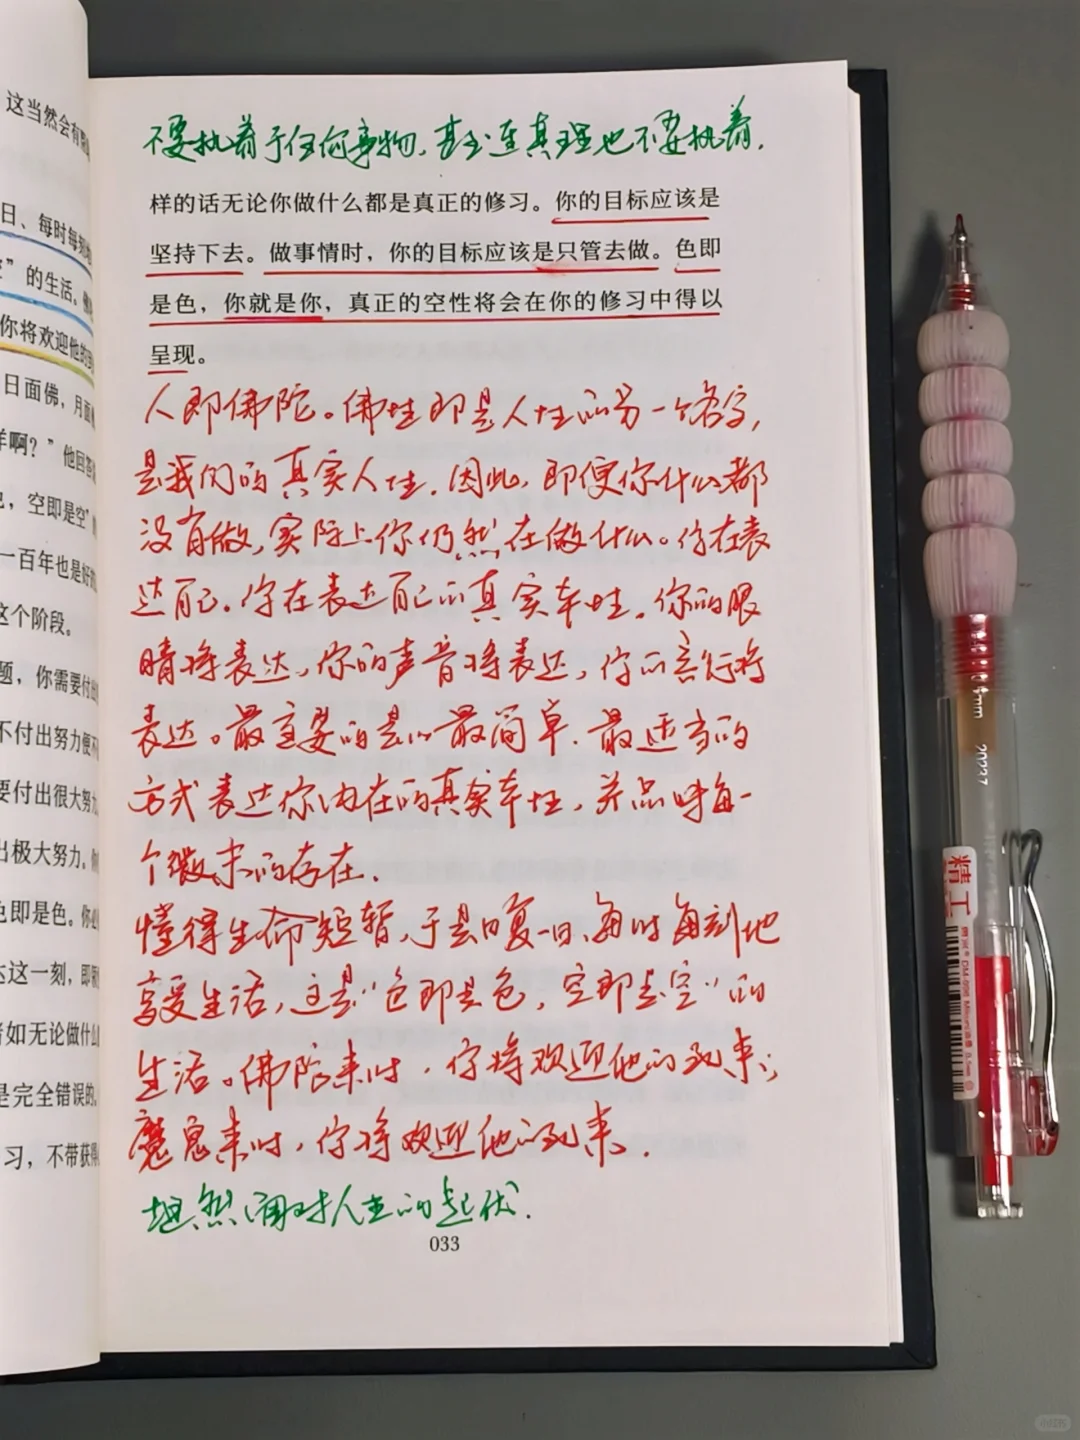 这当然会有
日、每时每刻
”的生活。
你将欢迎他的到
日面佛，月面
样啊？”他回答
，空即是空”
一百年也是好的
这个阶段。
题，你需要付出
不付出努力便不
要付出很大努力
出极大努力。
色即是色。你必
达这一刻，即
诸如无论做什么
是完全错误的。
习，不带获得
不要执着于任何事物，甚至连真理也不要执着。
样的话无论你做什么都是真正的修习。你的目标应该是
坚持下去。做事情时，你的目标应该是只管去做。色即
是色，你就是你，真正的空性将会在你的修习中得以
呈现。
人即佛陀。佛性即是人性的另一个名字，
是我们的真实人性。因此，即便你什么都
没有做，实际上你仍然在做什么。你在表
达自己。你在表达自己的真实本性。你的眼
睛将表达，你的声音将表达，你的言行将
表达。最重要的是以最简单、最适当的
方式表达你内在的真实本性，并品味每一
个微末的存在。
懂得生命短暂，于是日复一日、每时每刻地
享受生活，这是“色即是色，空即是空”的
生活。佛陀来时，你将欢迎他的到来；
魔鬼来时，你将欢迎他的到来。
坦然面对人生的起伏。
033
mm
20237
精工
小红书